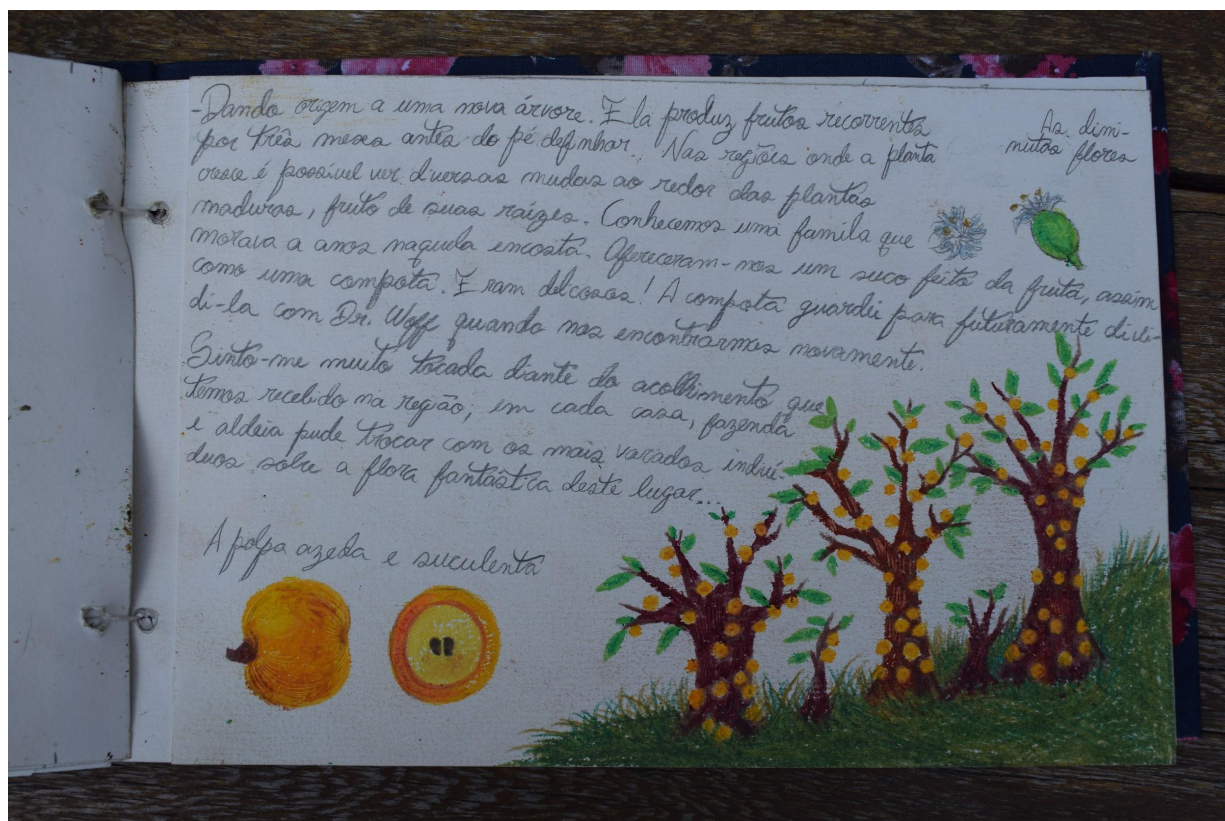 -Dando origem a uma nova árvore. Ela produz frutos recorrentes
por três meses antes do pé definhar. Nas regiões onde a planta
cresce é possível ver diversas mudas ao redor das plantas
maduras, fruto de suas raízes. Conhecemos uma familia que
morava a anos naquela encosta. Ofereceram-nos um suco feito da fruta, assim
como uma compota. Eram deliciosos! A compota guardei para futuramente divi-
di-la com Dr. Wolf quando nos encontrarmos novamente.
Sinto-me muito tocada diante do acolhimento que
temos recebido na região; em cada casa, fazenda
e aldeia pude trocar com os mais variados indiví-
duos sobre a flora fantástica deste lugar...
As dimi-
nutas flores
A polpa azeda e suculenta